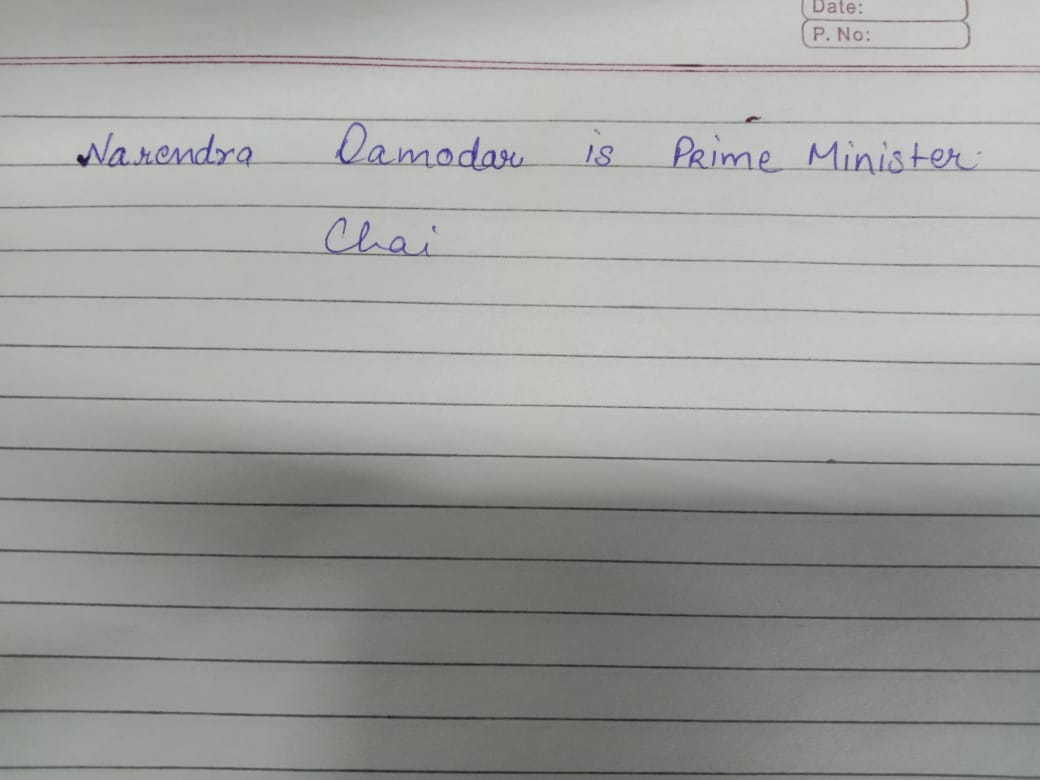 Date:
P. No:
Narendra Damodar is Prime Minister.
Chai